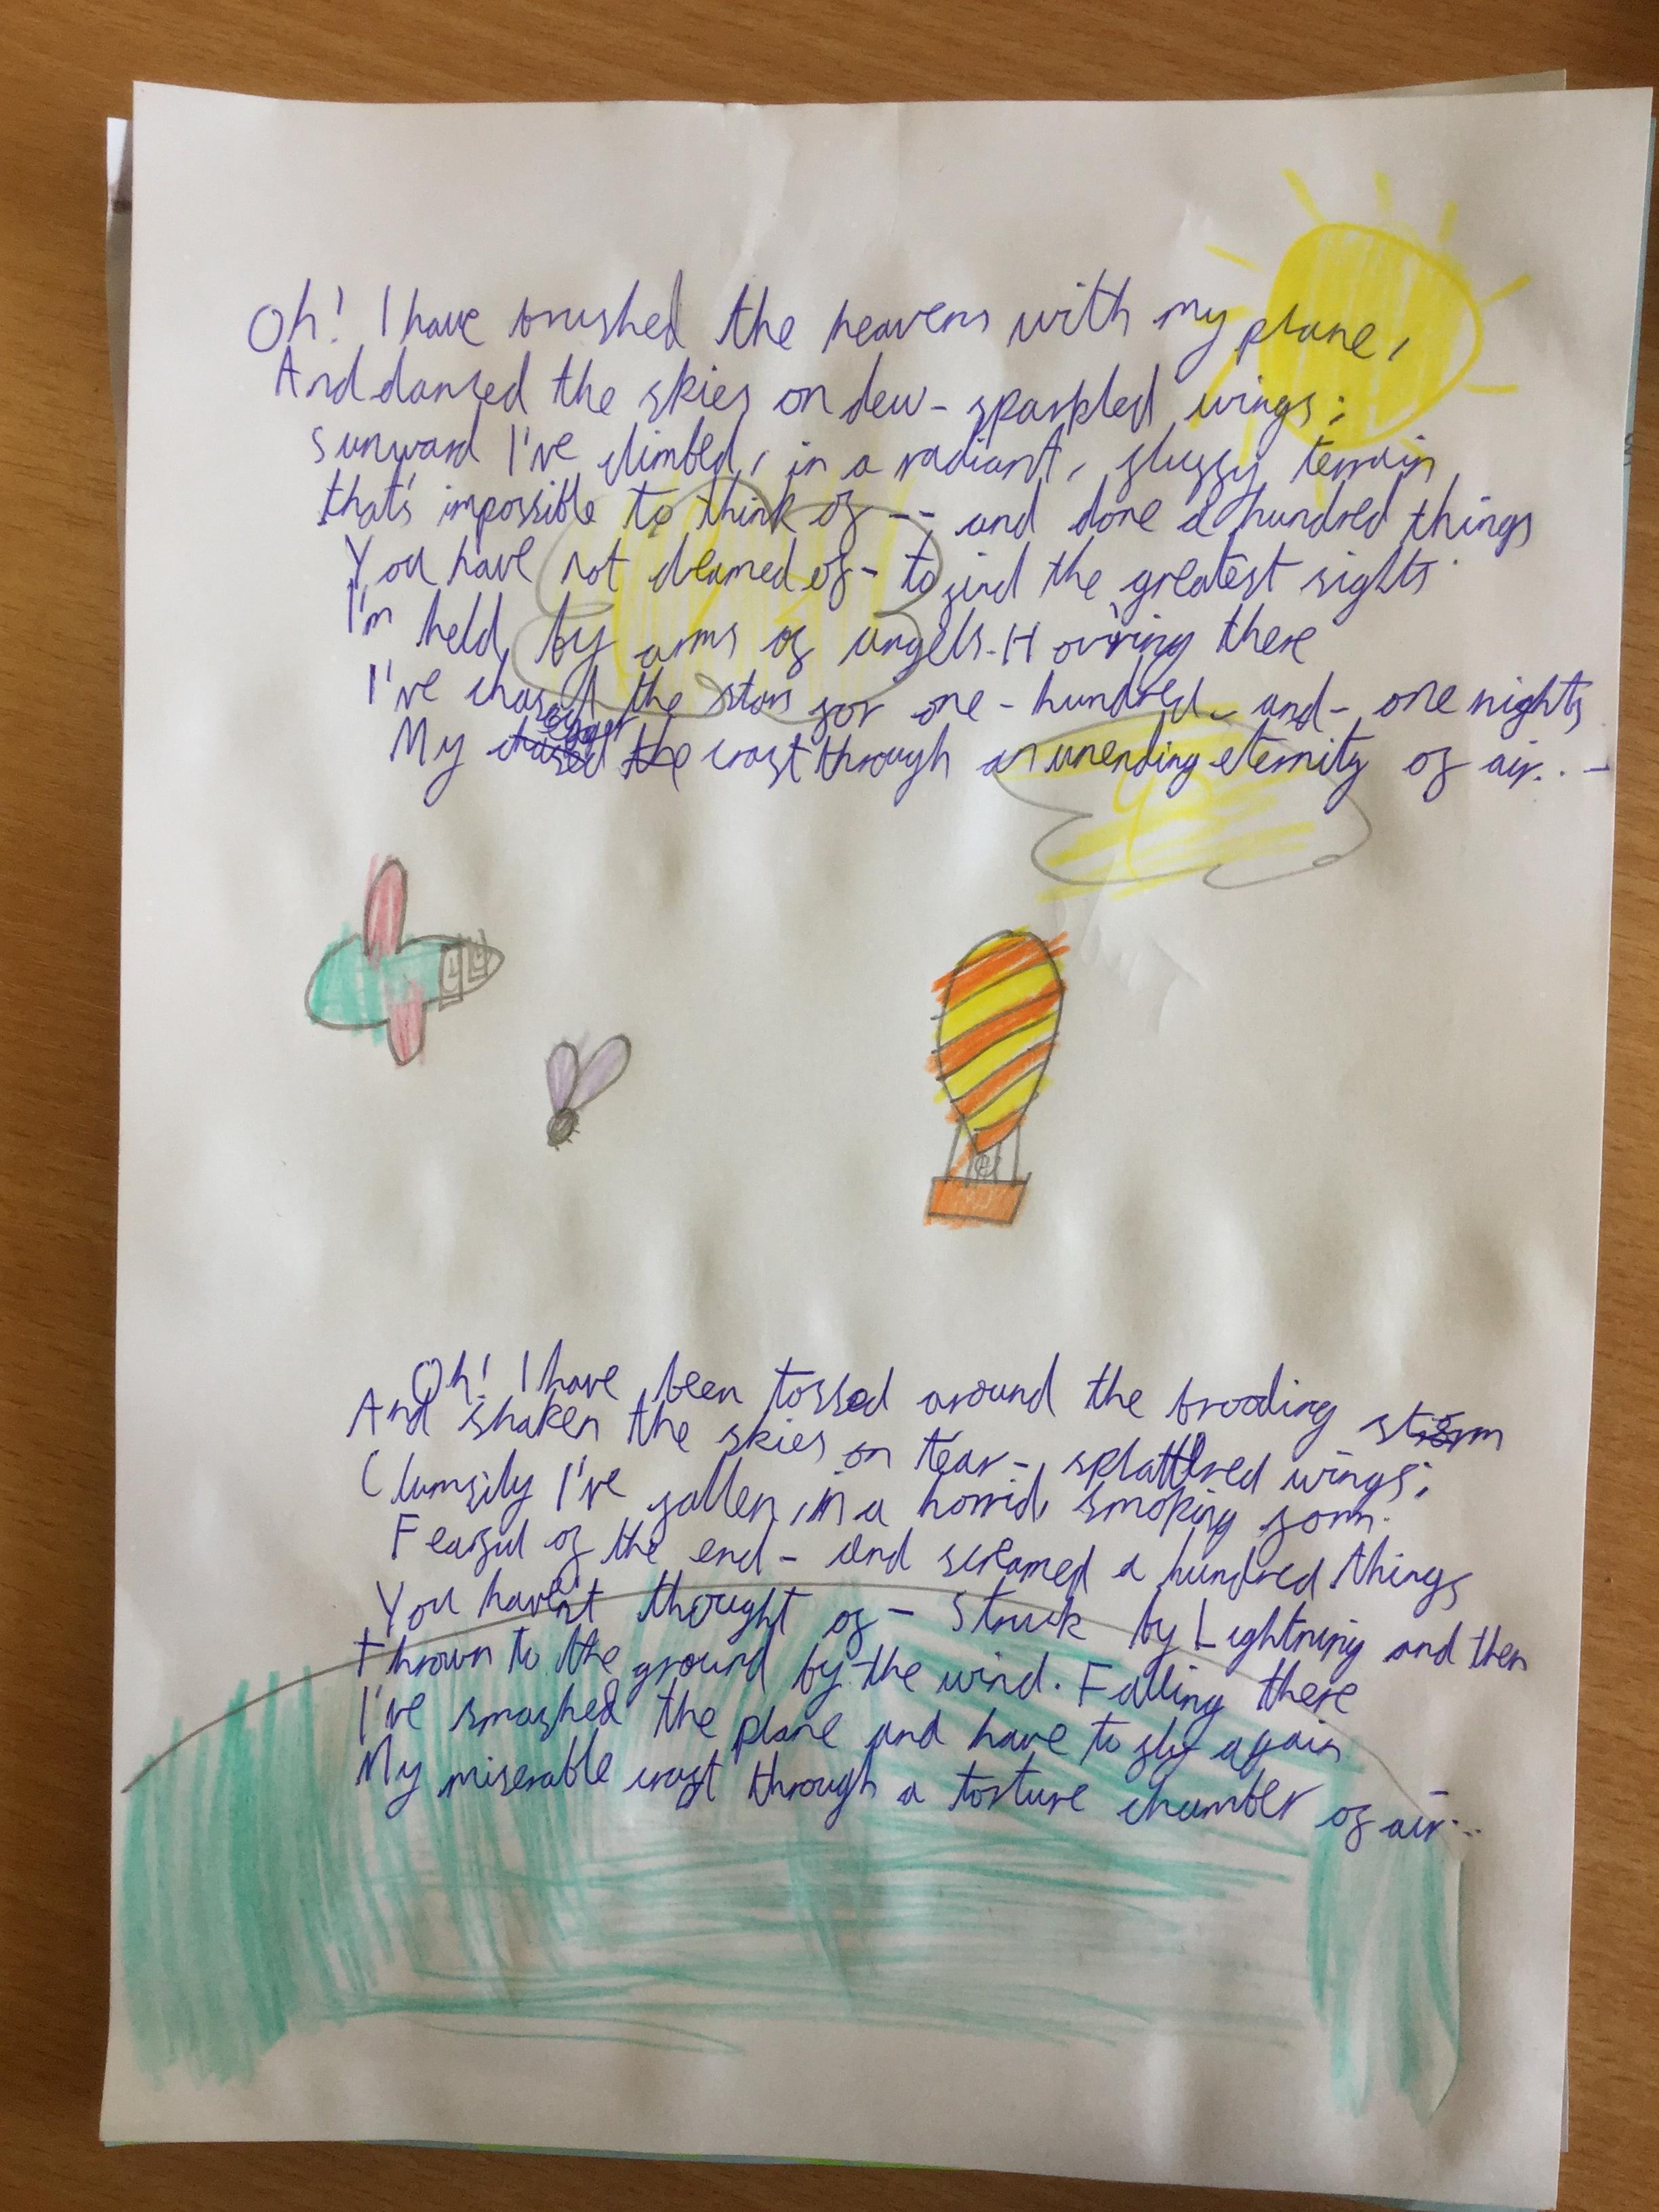 Oh! I have brushed the heavens with my plane,
And danced the skies on dew-sparkled wings;
Sunward I've climbed, in a radiant, fluffy terrain
that's impossible to think of -- and done a hundred things
You have not dreamed of - to find the greatest sights
I'm held by arms of angels. Hov'ring there
I've chased the stars for one-hundred-and-one nights
My eager craft through an unending eternity of air...
Oh! I have been tossed around the brooding storm
And shaken the skies on tear-splattered wings;
Clumsily I've fallen, in a horrid, smoking form.
Fearful of the end - and screamed a hundred things
You haven't thought of - Struck by Lightning and then
thrown to the ground by the wind. Falling there
I've smashed the plane and have to fly again
My miserable craft through a torture chamber of air...